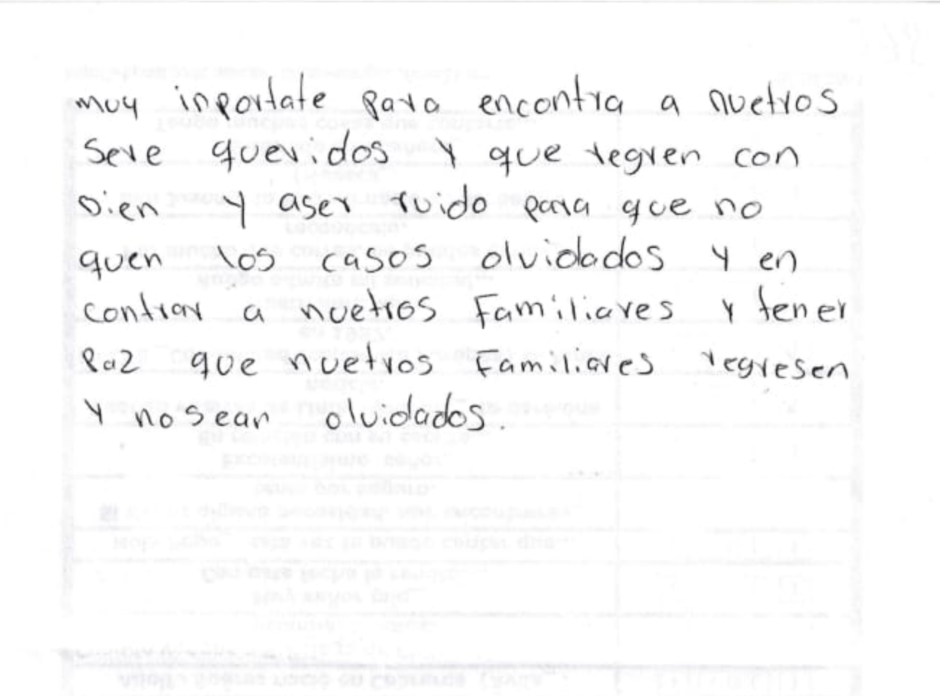 muy inportate para encontra a nuetros
Sere queridos y que regren con
bien y aser ruido para que no
quen los casos olvidados y en
contrar a nuetros Familiares y tener
paz que nuetros Familiares regresen
y no sean olvidados.